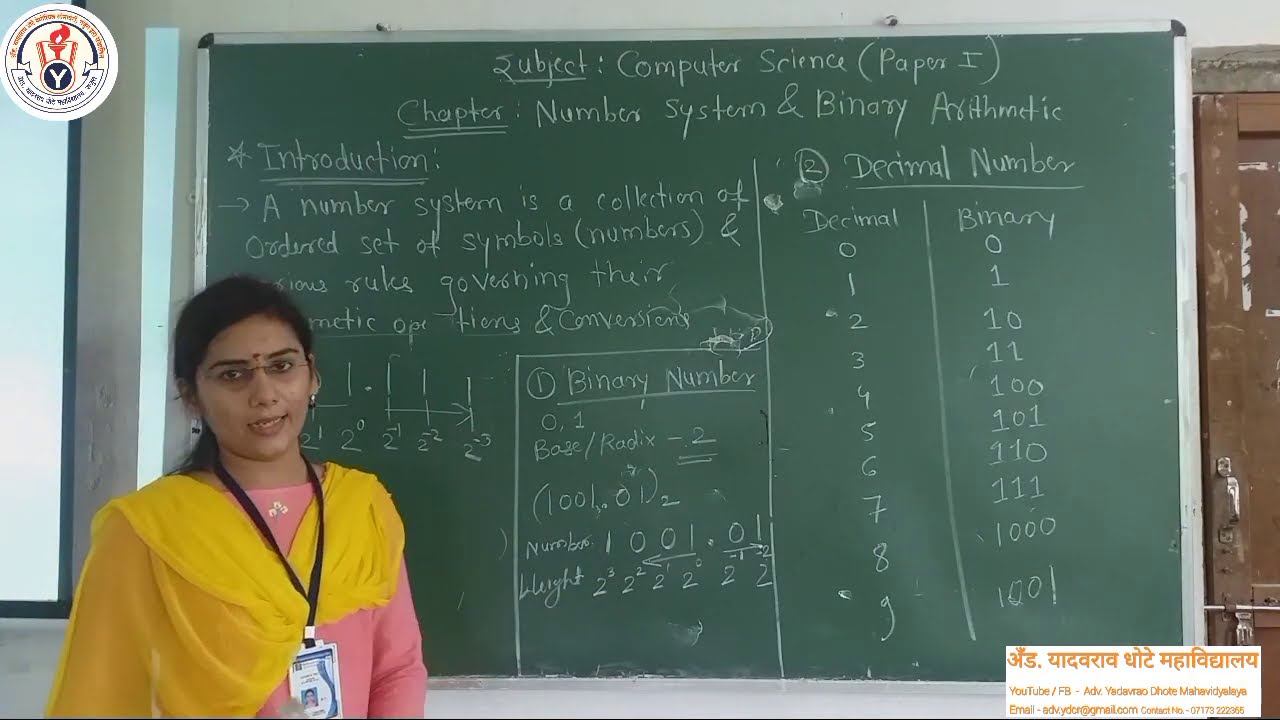 Subject: Computer Science (Paper I)
Chapter: Number System & Binary Arithmetic
* Introduction:
→ A number system is a collection of
Ordered set of symbols (numbers) &
rious rules governing their
metic ope tions & Conversions
1 . 1 1 1
2¹ 2⁰ 2⁻¹ 2⁻² 2⁻³
① Binary Number
0, 1
Base/Radix - 2
(1001.01)₂
Number: 1 0 0 1 . 0 1
Weight 2³ 2² 2¹ 2⁰ 2⁻¹ 2⁻²
② Decimal Number
Decimal Binary
0 0
1 1
2 10
3 11
4 100
5 101
6 110
7 111
8 1000
9 1001
Y
अँड. यादवराव धोटे महाविद्यालय
YouTube / FB - Adv. Yadavrao Dhote Mahavidyalaya
Email - adv.ydcr@gmail.com Contact No. - 07173 222365